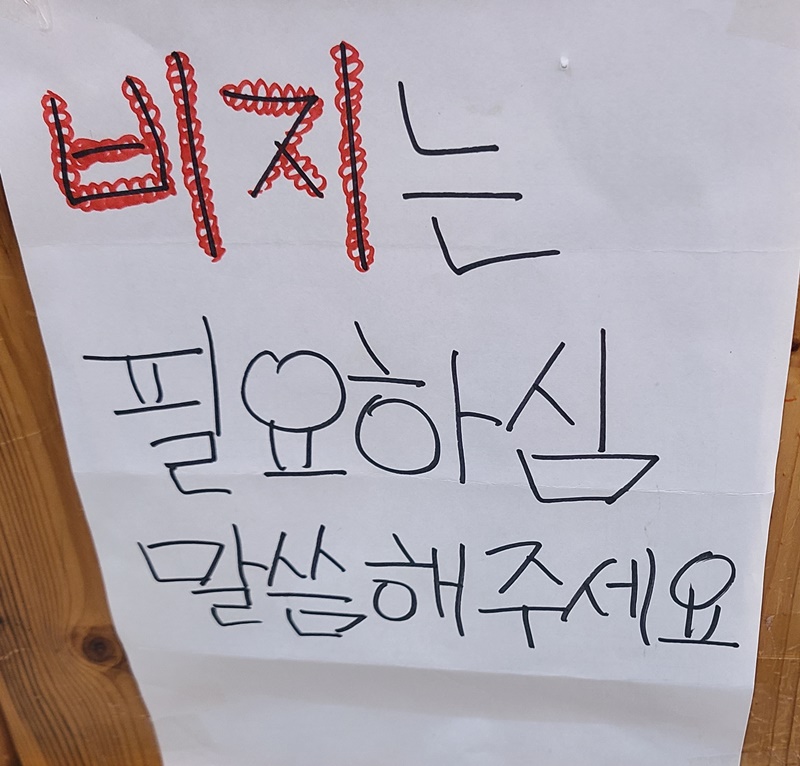 비지는
필요하심
말씀해주세요